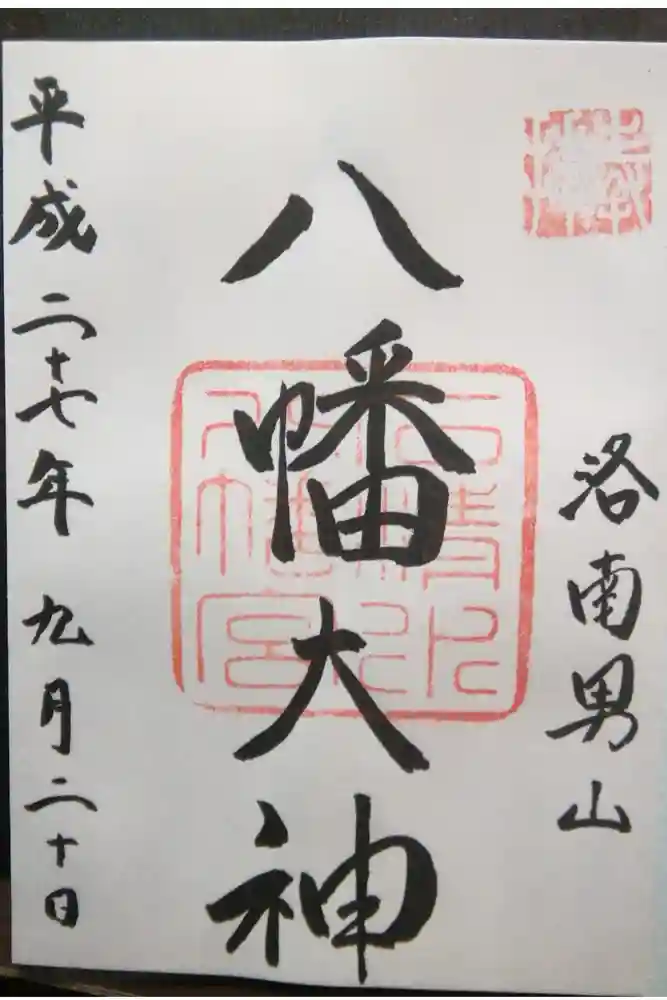 洛南男山
八幡大神
石清水
八幡宮
平成二十七年九月二十日